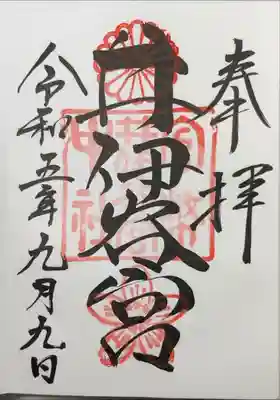 奉拝
井伊谷宮
令和五年九月九日